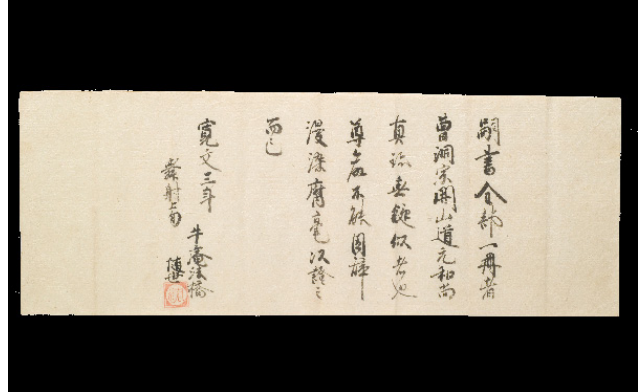 嗣書全部一冊者
曹洞宗開山道元和尚
真跡無疑似者也
尊不能固辞
漫染腐毫以證之
而已
寛文三年
牛庵法橋